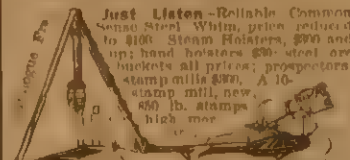 Just Listen-Reliable Common
Sense Steel Whim, price reduced
to $100 Steam Hoisters, $300 and
up; hand hoisters $30; steel ore
buckets all prices; prospectors
stamp mills $300, A 10-
stamp mill, new,
850 lb. stamps
high mor